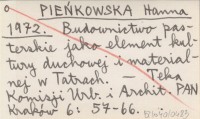 PIEŃKOWSKA Hanna
1972. Budownictwo pas-
terskie jako element kul-
tury duchowej i material-
nej w Tatrach. — Teka
Komisji Urb. i Archit. PAN
Kraków 6: 57-66.